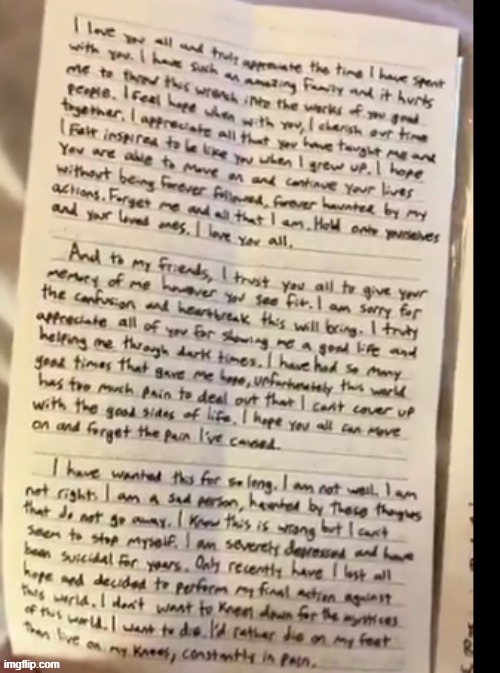 I love you all and truly appreciate the time I have spent
with you. I have such an amazing family and it hurts
me to throw this wrench into the works of you good
people. I feel hope when with you, I cherish our time
together. I appreciate all that you have taught me and
I felt inspired to be like you when I grew up. I hope
You are able to move on and continue your lives
without being forever followed, forever haunted by my
actions. Forget me and all that I am. Hold onto yourselves
and your loved ones. I love you all.
And to my friends, I trust you all to give your
memory of me however you see fit. I am sorry for
the confusion and heartbreak this will bring. I truly
appreciate all of you for showing me a good life and
helping me through dark times. I have had so many
good times that gave me hope, unfortunately this world
has too much pain to deal out that I can't cover up
with the good sides of life. I hope you all can move
on and forget the pain I've caused.
I have wanted this for so long. I am not well. I am
not right. I am a sad person, haunted by these thoughts
that do not go away. I know this is wrong but I can't
seem to stop myself. I am severely depressed and have
been suicidal for years. Only recently have I lost all
hope and decided to perform my final action against
this world. I don't want to kneel down for the injustices
of this world. I want to die. I'd rather die on my feet
than live on my knees, constantly in pain.
imgflip.com